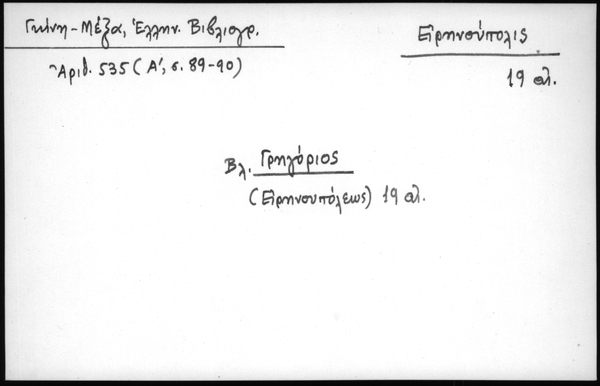 Γκίνη-Μέξα, Ἑλλην. Βιβλιογρ.
Ἀριθ. 535 (Α', σ. 89-90)
Εἰρηνούπολις
19 αἰ.
Βλ. Γρηγόριος
(Εἰρηνουπόλεως) 19 αἰ.